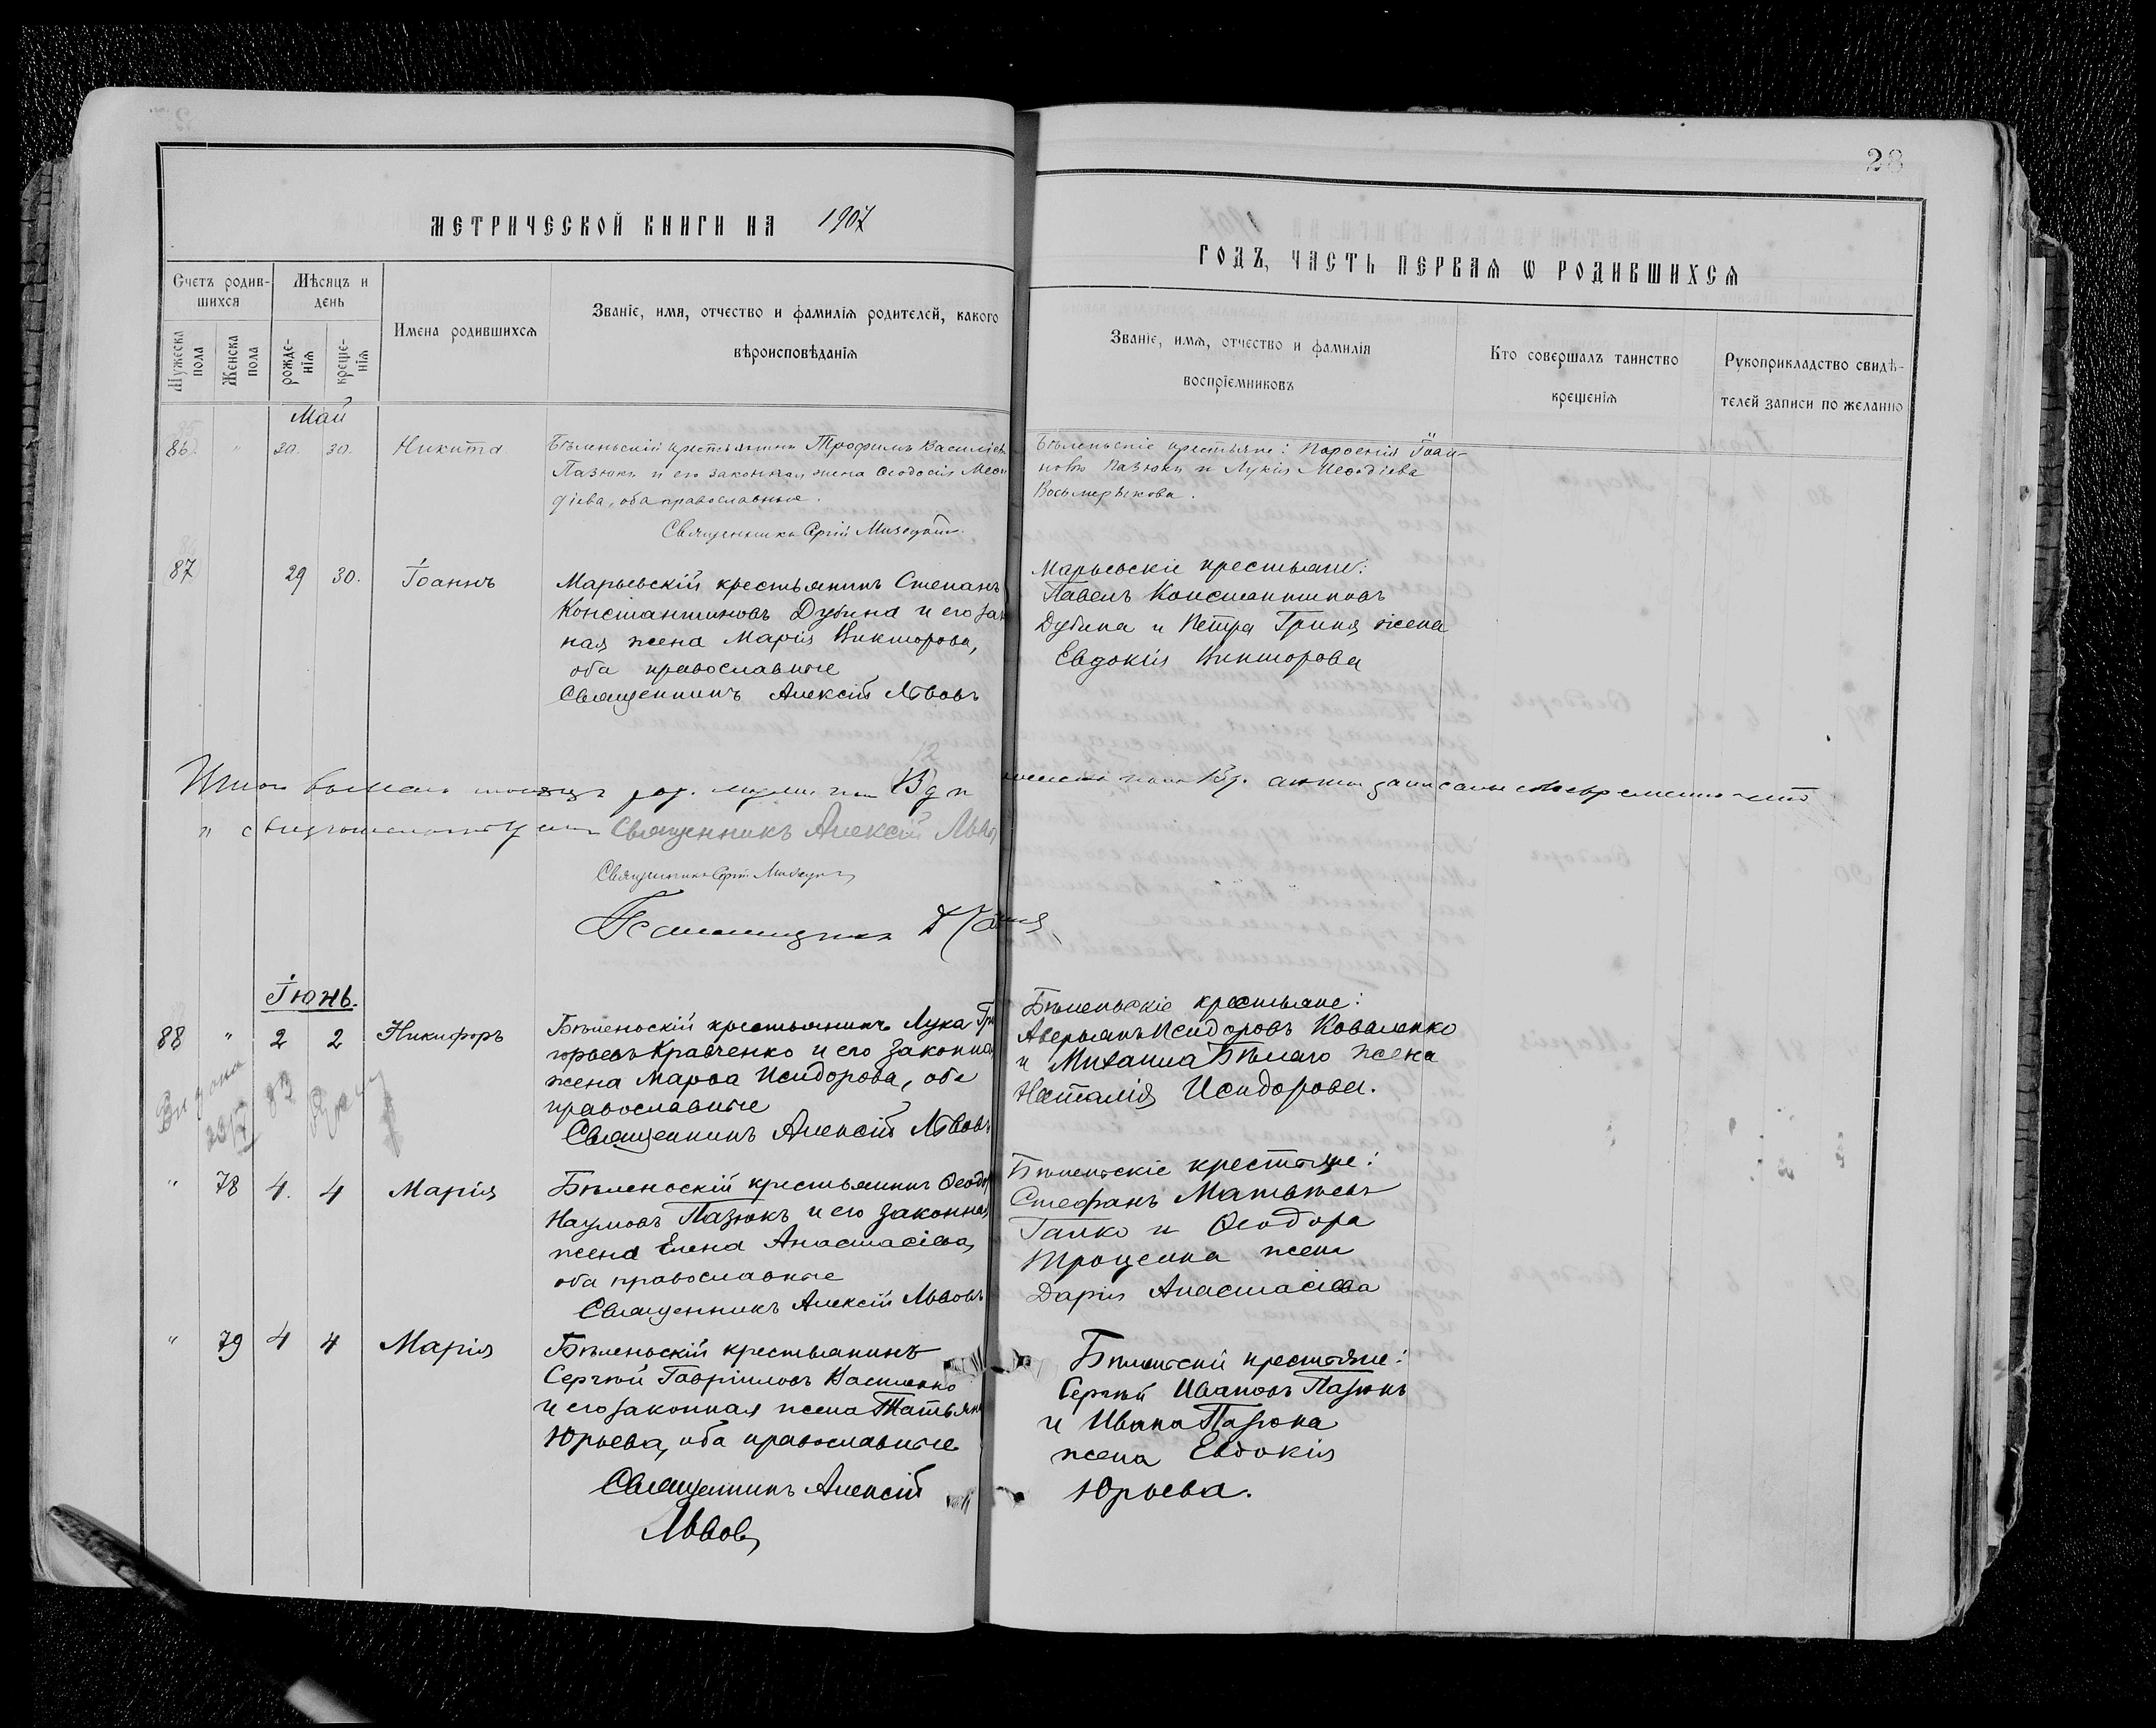 28
МЕТРИЧЕСКОЙ КНИГИ НА 1907
ГОДЪ, ЧАСТЬ ПЕРВАЯ Ѡ РОДИВШИХСЯ
Счетъ родив-
шихся
Мѣсяцъ и
день
Мужеска
пола
Женска
пола
рожде-
нія
креще-
нія
Имена родившихся
Званіе, имя, отчество и фамилія родителей, какого
вѣроисповѣданія
Званіе, имя, отчество и фамилія
воспріемниковъ
Кто совершалъ таинство
крещенія
Рукоприкладство свидѣ-
телей записи по желанію
Май
86. " 30. 30. Никита
Бѣленьскій крестьянинъ Трофимъ Василіев
Пазюкъ и его законная жена Ѳеодосія Меѳо
діева, оба православные.
Священникъ Сергій
Бѣленьскіе крестьяне: Парѳеній Іоан-
новъ Пазюкъ и Лукія Меѳодіева
Восьмерикова.
87 29 30. Іоаннъ
Марьевскій крестьянинъ Степанъ
Константиновъ Дубина и его зак
ная жена Марія Викторова,
оба православные
Священникъ Алексій Львовъ
Марьевскіе крестьяне:
Павелъ Константиновъ
Дубина и Петра Гриня жена
Евдокія Викторова
Итого
Священникъ Алексій Львов
Священникъ Сергій
Іюнь.
88 " 2 2 Никифоръ
Бѣленьскій крестьянинъ Лука Гри
горьевъ Кравченко и его законна
жена Марѳа Исидорова, оба
православные
Священникъ Алексій Львовъ
Бѣленьскіе крестьяне:
Аверьянъ Исидоровъ Коваленко
и Михаила Бѣлаго жена
Наталія Исидорова.
" 78 4. 4 Марія
Бѣленьскій крестьянинъ Ѳеодор
Наумовъ Пазюкъ и его законная
жена Елена Анастасіева,
оба православные
Священникъ Алексій Львовъ
Бѣленьскіе крестьяне:
Стефанъ Матвѣевъ
Гапко и Ѳеодора
Троценка жена
Дарія Анастасіева
" 79 4 4 Марія
Бѣленьскій крестьянинъ
Сергѣй Гавріиловъ Василенко
и его законная жена Татьяна
Юрьева, оба православные
Священникъ Алексій
Львовъ
Бѣленьскій крестьяне:
Сергѣй Ивановъ Пазюкъ
и Ивана Пазюка
жена Евдокія
Юрьева.